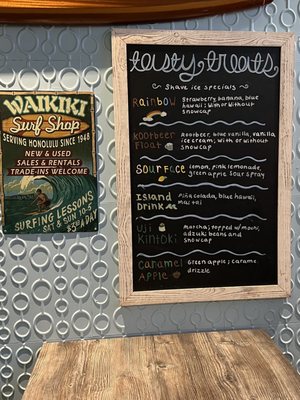 WAIKIKI
Surf Shop
SERVING HONOLULU SINCE 1948
NEW & USED
SALES & RENTALS
TRADE-INS WELCOME
SURFING LESSONS
SAT & SUN 10-5
$5 A DAY
tasty treats
~ Shave ice specials ~
Rainbow
Strawberry, banana, blue
hawaii; with or without
snowcap
Rootbeer
Float
Rootbeer, blue vanilla, vanilla
ice cream; with or without
snowcap
Sourface
Lemon, pink lemonade,
green apple sour spray
Island
Drink
Piña colada, blue hawaii,
mai tai
Uji
Kintoki
Matcha; topped w/ mochi,
adzuki beans and
snowcap
Caramel
Apple
Green apple; caramel
drizzle